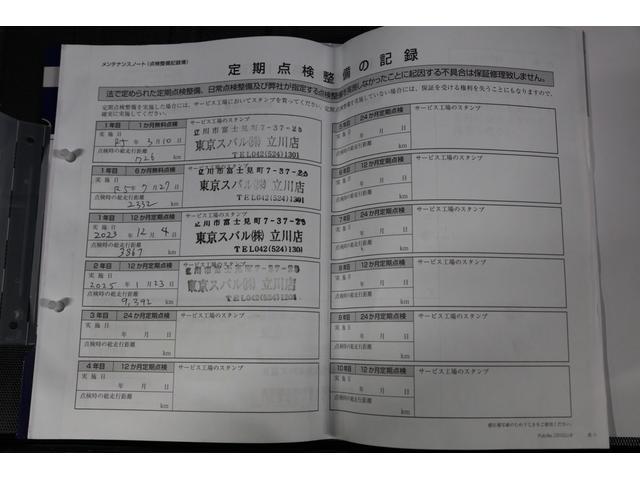 メンテナンスノート(点検整備記録簿)
定期点検整備の記録
法で定められた定期点検整備、日常点検整備及び弊社が指定する点検整備を実施しなかったことに起因する不具合は保証修理致しません。
1年目 1か月無料点検 サービス工場のスタンプ
実施日
R5年3月10日
点検時の総走行距離
726 km
立川市富士見町7-37-25
東京スバル㈱ 立川店
TEL042(524)1301
1年目 6か月無料点検 サービス工場のスタンプ
実施日
R5年7月27日
点検時の総走行距離
2332 km
立川市富士見町7-37-25
東京スバル㈱ 立川店
TEL042(524)1301
1年目 12か月定期点検 サービス工場のスタンプ
実施日
2023年12月4日
点検時の総走行距離
3867 km
立川市富士見町7-37-25
東京スバル㈱ 立川店
TEL042(524)1301
2年目 12か月定期点検 サービス工場のスタンプ
実施日
2025年1月23日
点検時の総走行距離
9,392 km
立川市富士見町7-37-25
東京スバル㈱ 立川店
TEL042(524)1301
3年目 24か月定期点検 サービス工場のスタンプ
実施日
年 月 日
点検時の総走行距離
km
4年目 12か月定期点検 サービス工場のスタンプ
実施日
年 月 日
点検時の総走行距離
km
5年目 24か月定期点検 サービス工場のスタンプ
実施日
年 月 日
点検時の総走行距離
km
6年目 12か月定期点検 サービス工場のスタンプ
実施日
年 月 日
点検時の総走行距離
km
7年目 24か月定期点検 サービス工場のスタンプ
実施日
年 月 日
点検時の総走行距離
km
8年目 12か月定期点検 サービス工場のスタンプ
実施日
年 月 日
点検時の総走行距離
km
9年目 24か月定期点検 サービス工場のスタンプ
実施日
年 月 日
点検時の総走行距離
km
10年目 12か月定期点検 サービス工場のスタンプ
実施日
年 月 日
点検時の総走行距離
km